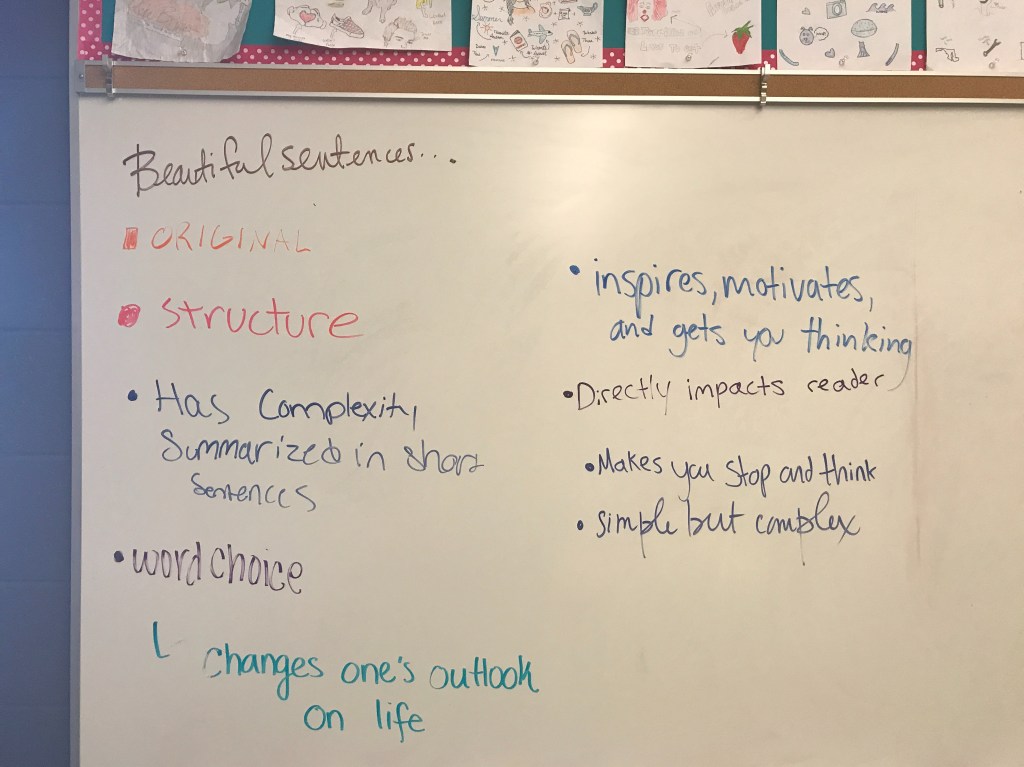 Beautiful sentences...
▪ ORIGINAL
• structure
• Has Complexity
Summarized in short
Sentences
• word choice
changes one's outlook
on life
• inspires, motivates,
and gets you thinking
• Directly impacts reader
• Makes you stop and think
• simple but complex